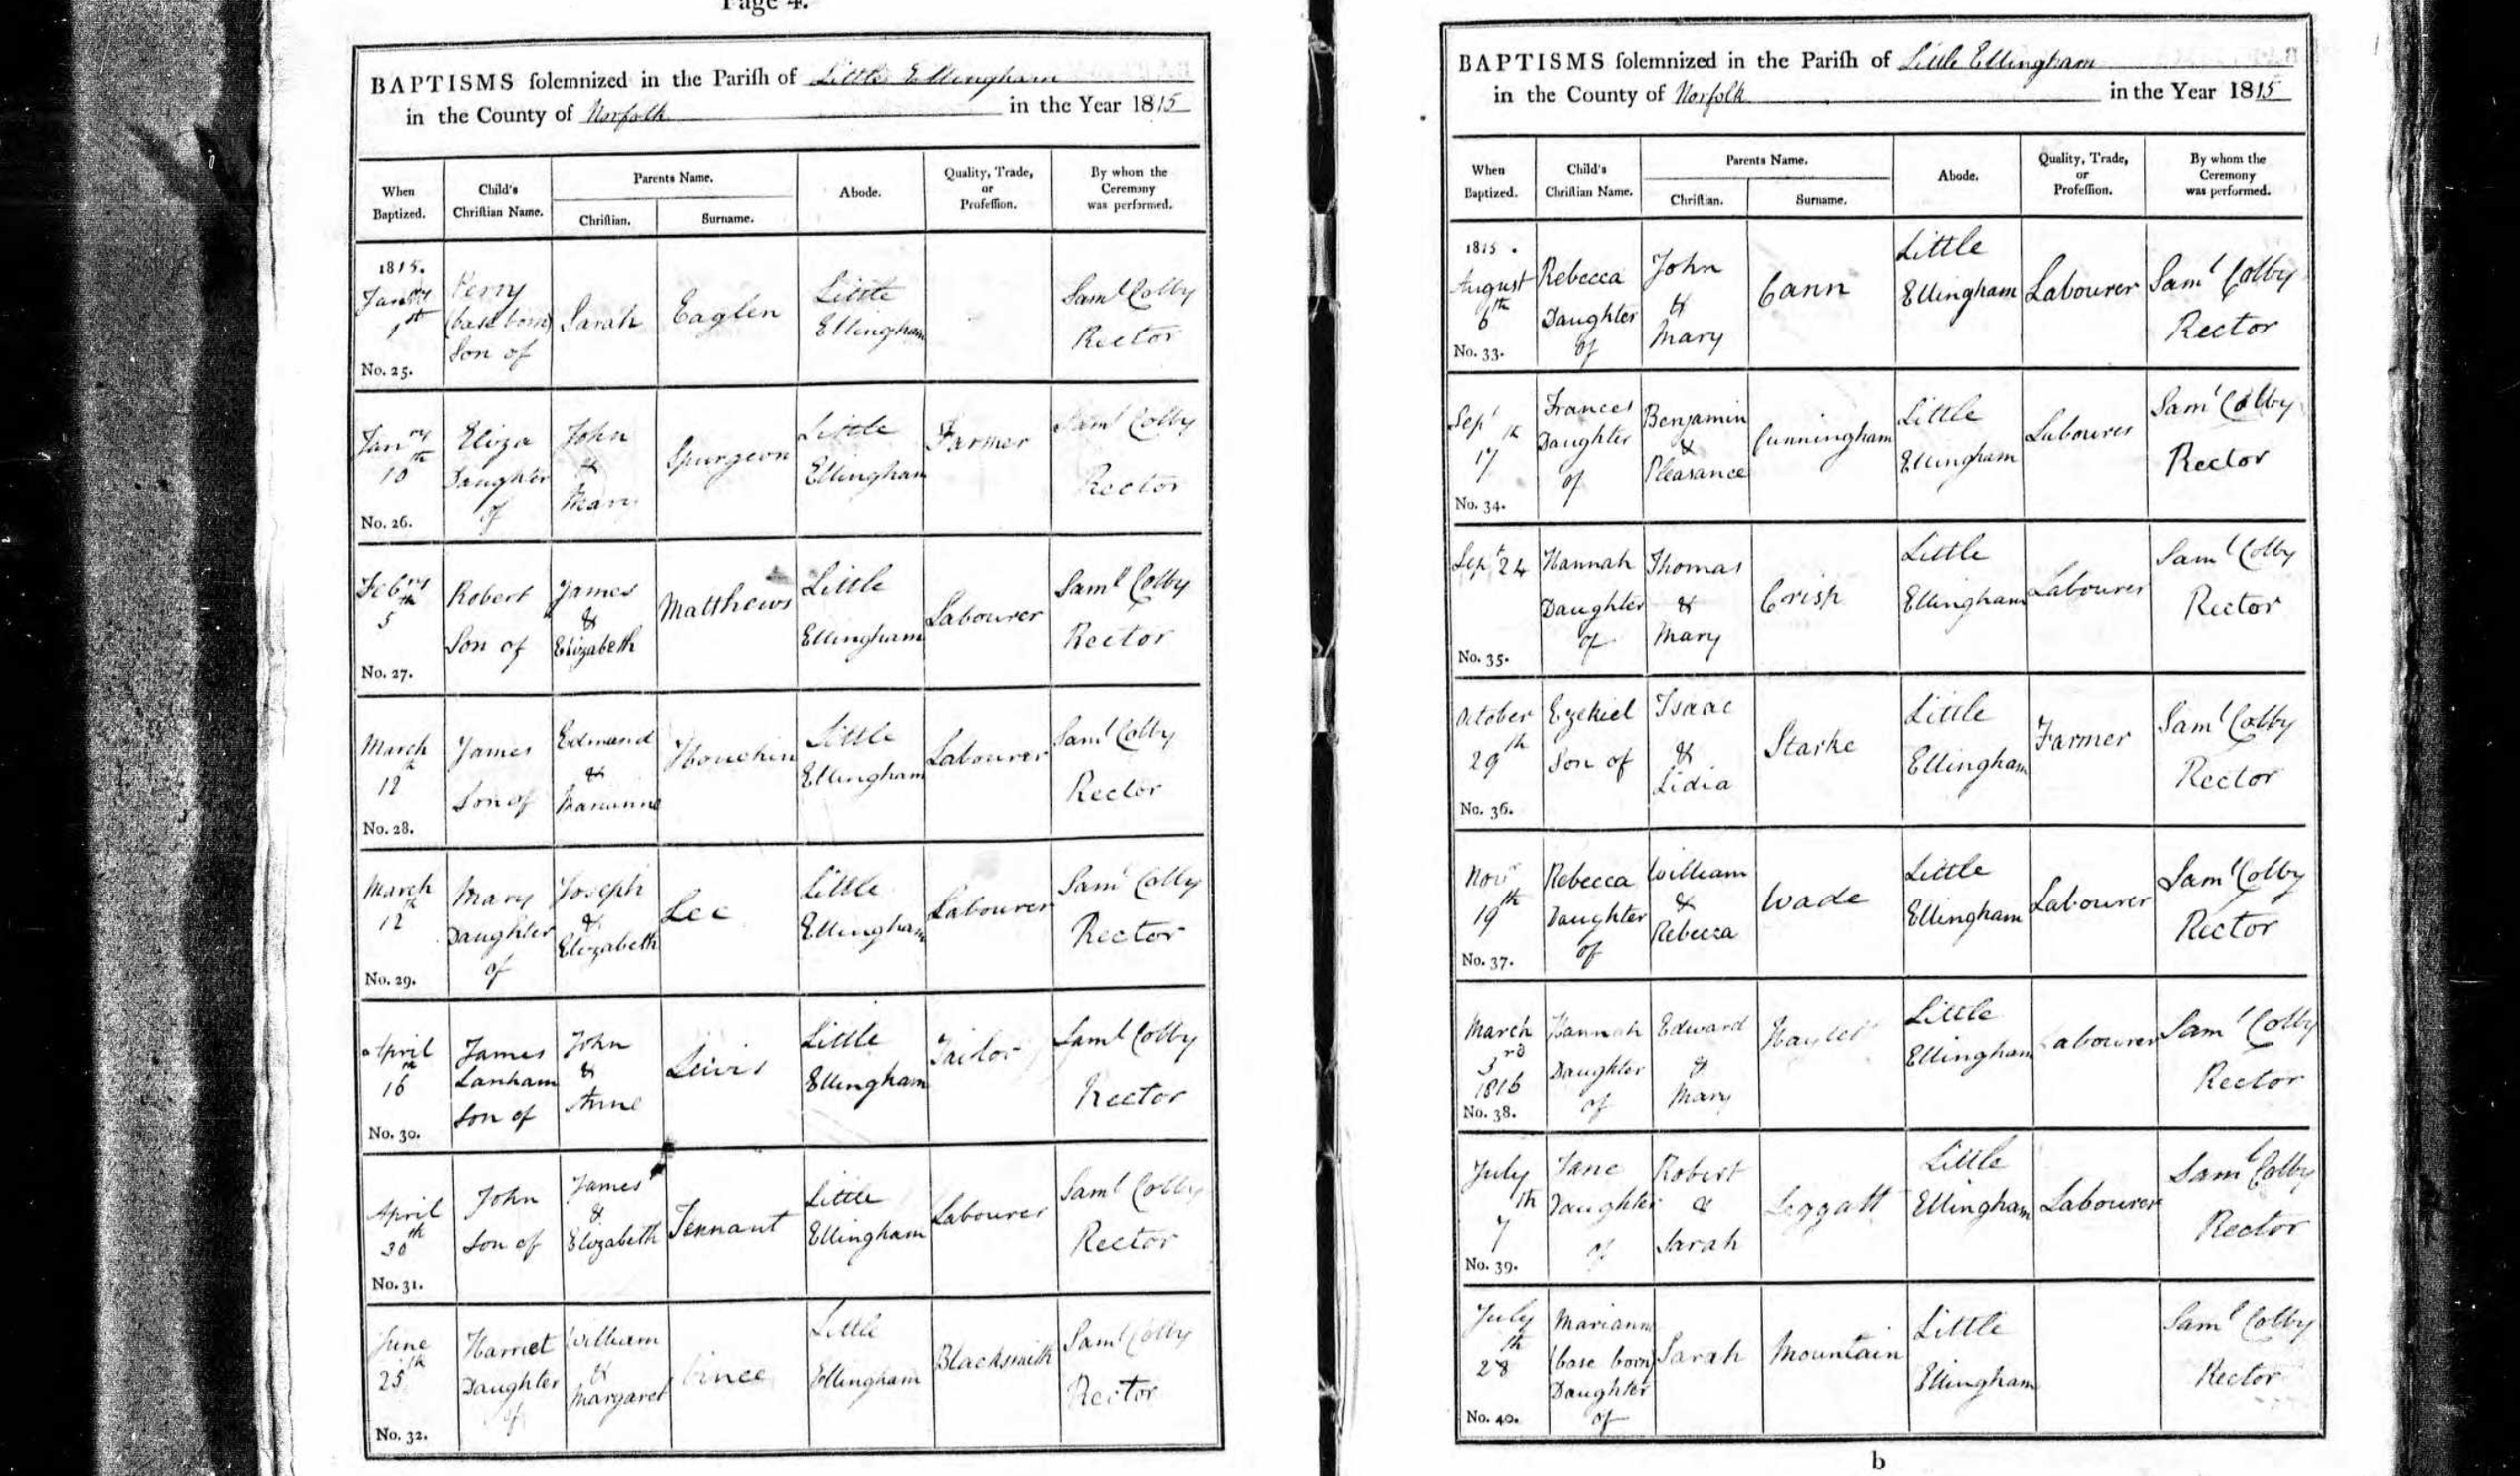 Page 4.
BAPTISMS solemnized in the Parish of Little Ellingham
in the County of Norfolk in the Year 1815
When Baptized.
Child's Christian Name.
Parents Name.
Christian.
Surname.
Abode.
Quality, Trade, or Profession.
By whom the Ceremony was performed.
1815.
Janry 1st
No. 25.
Perry (base born) Son of
Sarah
Eaglen
Little Ellingham
Saml Colby Rector
Janry 10th
No. 26.
Eliza Daughter of
John & Mary
Spurgeon
Little Ellingham
Farmer
Saml Colby Rector
Febry 5th
No. 27.
Robert Son of
James & Elizabeth
Matthews
Little Ellingham
Labourer
Saml Colby Rector
March 12th
No. 28.
James Son of
Edmund & Marianne
Houchin
Little Ellingham
Labourer
Saml Colby Rector
March 12th
No. 29.
Mary Daughter of
Joseph & Elizabeth
Lee
Little Ellingham
Labourer
Saml Colby Rector
April 16th
No. 30.
James Lanham Son of
John & Anne
Lewis
Little Ellingham
Tailor
Saml Colby Rector
April 30th
No. 31.
John Son of
James & Elizabeth
Tennant
Little Ellingham
Labourer
Saml Colby Rector
June 25th
No. 32.
Harriet Daughter of
William & Margaret
Vince
Little Ellingham
Blacksmith
Saml Colby Rector
BAPTISMS solemnized in the Parish of Little Ellingham
in the County of Norfolk in the Year 1815
When Baptized.
Child's Christian Name.
Parents Name.
Christian.
Surname.
Abode.
Quality, Trade, or Profession.
By whom the Ceremony was performed.
1815.
August 6th
No. 33.
Rebecca Daughter of
John & Mary
Cann
Little Ellingham
Labourer
Saml Colby Rector
Sept 17th
No. 34.
Frances Daughter of
Benjamin & Pleasance
Cunningham
Little Ellingham
Labourer
Saml Colby Rector
Sept 24
No. 35.
Hannah Daughter of
Thomas & Mary
Crisp
Little Ellingham
Labourer
Saml Colby Rector
October 29th
No. 36.
Ezekiel Son of
Isaac & Lidia
Starke
Little Ellingham
Farmer
Saml Colby Rector
Novr 19th
No. 37.
Rebecca Daughter of
William & Rebecca
Wade
Little Ellingham
Labourer
Saml Colby Rector
March 3rd 1816
No. 38.
Hannah Daughter of
Edward & Mary
Little Ellingham
Labourer
Saml Colby Rector
July 7th
No. 39.
Jane Daughter of
Robert & Sarah
Leggatt
Little Ellingham
Labourer
Saml Colby Rector
July 28th
No. 40.
Mariann (base born) Daughter of
Sarah
Mountain
Little Ellingham
Saml Colby Rector
b